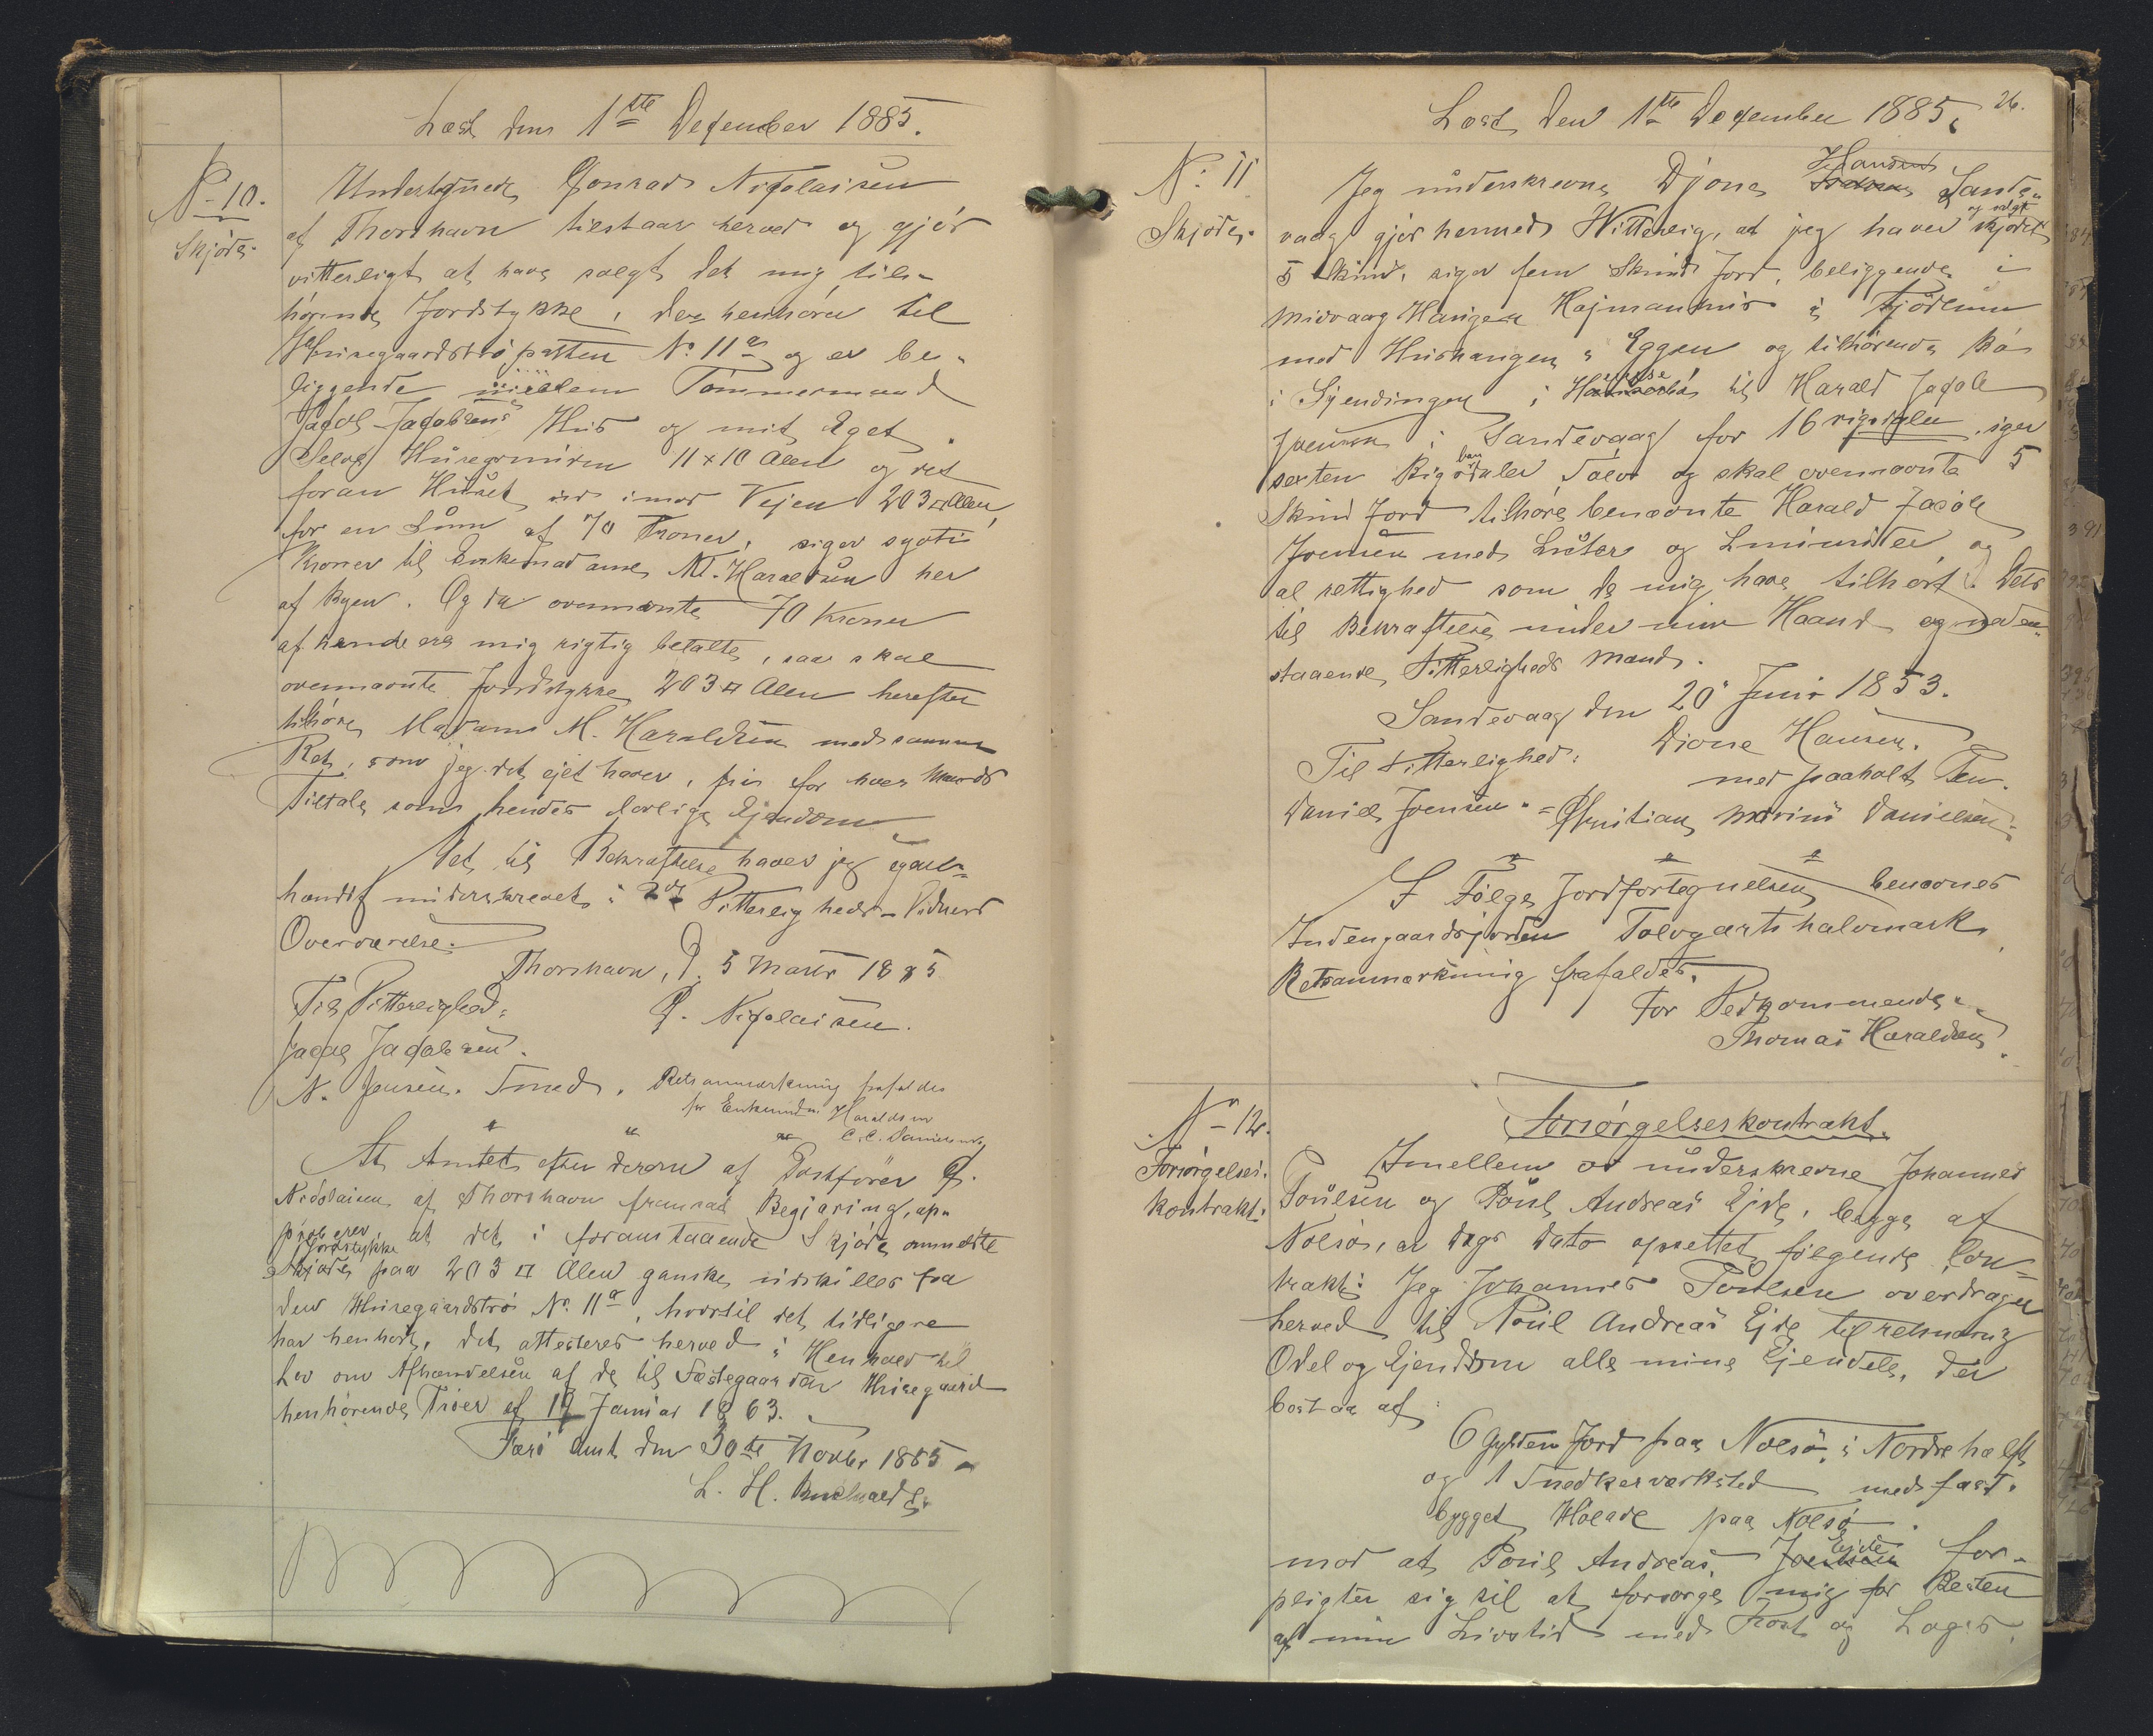 Læst den 1ste December 1885.
No 10.
Skjøde.
Undertegnede Conrad Nicolaisen
af Thorshavn tilstaar herved og gjør
vitterligt at have solgt det mig til-
hørende Jordstykke, der henhører til
Husegaardstrøpatten No 11a og er be-
liggende mellem Tømmermand
Jacob Jacobsens Hus og mit Eget.
Selve Husegrunden 11 x 10 Alen og det
foran Huset ud imod Vejen 203 □ Alen,
for en Sum af 70 Kroner, siger syvti
Kroner til Enkemadame M. Haraldsen her
af Byen. Og da ovennævnte 70 Kroner
af hende ere mig rigtig betalte, saa skal
ovennævnte Jordstykke 203 □ Alen herefter
tilhøre Madame M. Haraldsen med samme
Ret, som jeg det ejet haver, fri for hver Mands
Tiltale som hendes lovlige Ejendom
Det til Bekræftelse haver jeg egen-
hændig underskrevet i 2de Vitterligheds-Vidners
Overværelse.
Thorshavn, d. 5 Marts 1885
Til Vitterlighed: C. Nicolaisen.
Jacob Jacobsen.
N. Jensen. Smed. Retsanmærkning frafaldes
for Enkemadm Haraldsen
C. C. Danielsen
At Amtet efter derom af Postfører C.
Nicolaisen af Thorshavn fremsat Begjæring, ap-
proberer, at det i foranstaaende Skjøde ommeldte
Jordstykke
Skjøde paa 203 □ Alen ganske udskilles fra
den Husegaardstrø No 11a, hvortil det tidligere
har henhørt, det attesteres herved i Henhold til
Lov om Afhændelsen af de til Fæstegaarden Husegaard
henhørende Trøer af 19 Januar 1863.
Færø Amt den 30te Novbr 1885
L. H. Buchwald
26.
Læst den 1ste December 1885.
No 11
Skjøde.
Jeg underskrevne Djone Hansen Sande-
og solgt
vaag gjør hermed Vitterlig, at jeg haver skjødet
5 Skind, siger fem Skind Jord, beliggende i
Midvaag Haugen Hajmanhus i Fjødenum
med Hushaugen i Eggen og tilhørende
i til Harald Jacob
Joensen i Sandevaag for 16 rigsdaler, siger
sexten Rigsbandaler Sølv og skal ovennævnte 5
Skind Jord tilhøre benævnte Harald Jacob
Joensen med Luter og Lunninder og
al rettighed som de mig have tilhørt. Dets
til Bekræftelse under min Haand og neden-
staaende Vitterligheds Mænd.
Sandevaag den 20 Juni 1853.
Til Vitterlighed: Djone Hansen.
med paaholt Pen.
Daniel Joensen. Christian Marius Danielsen.
I Følge Jordfortegnelsen benævnes
Indengaardsjorden Tolvgærtshalvmark.
Retsanmærkning frafaldes.
For Vedkommende.
Thomas Haraldsen
No 12.
Forsørgelses-
kontrakt:
Forsørgelseskontrakt.
Imellem os underskrevne Johannes
Poulsen og Poul Andreas Ejde, begge af
Nolsø, er Dags Dato opsettet følgende Con-
trakt: Jeg Johannes Poulsen overdrager
herved til Poul Andreas Ejde til retmæssig
Odel og Ejendom alle mine Ejendele, der
bestaa af:
6 Gylden Jord paa Nolsø, i Nordre hælft,
og 1 Snedkerværksted med fast-
bygget Hoelade paa Nolsø.
Ejde
mod at Poul Andreas Joensen for-
pligter sig til at forsørge mig for Resten
af min Livstid med Kost og Logis.